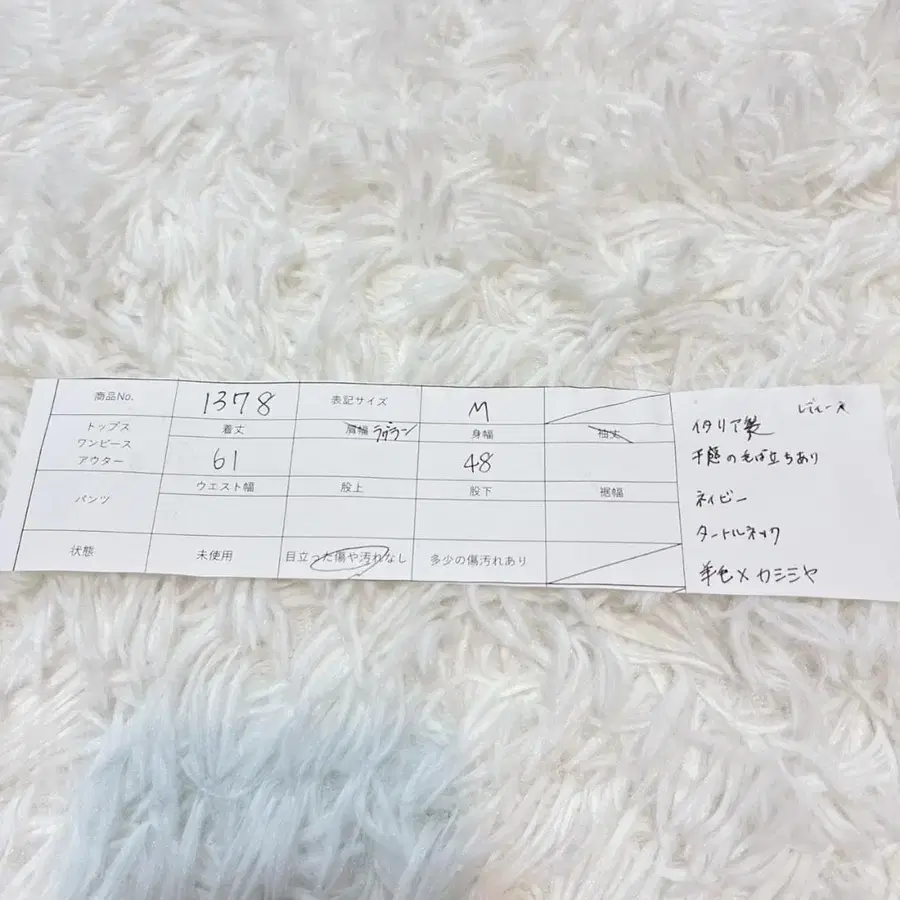 商品No. 1378 表記サイズ M
トップス
ワンピース
アウター
着丈 肩幅 ラグラン 身幅 袖丈
61 48
パンツ
ウエスト幅 股上 股下 裾幅
状態 未使用 目立った傷や汚れなし 多少の傷汚れあり
レディース
イタリア製
の毛ば立ちあり
ネイビー
タートルネック
カシミヤ